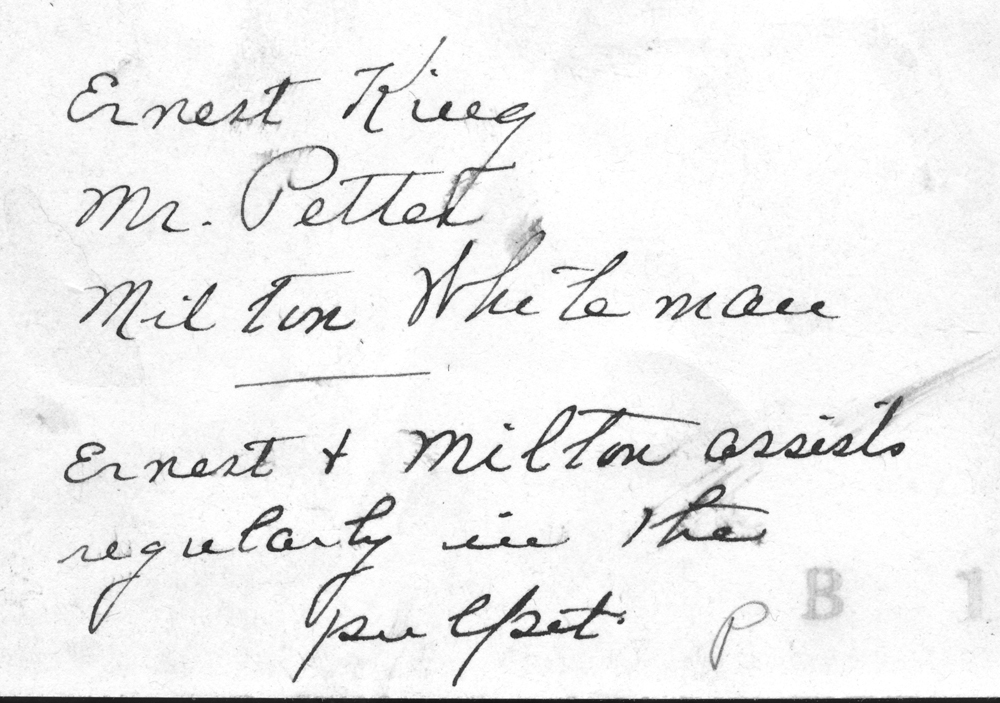 Ernest King
Mr. Pettet
Milton Whiteman
Ernest & Milton assists
regularly in the
pulpit.
P
B 1